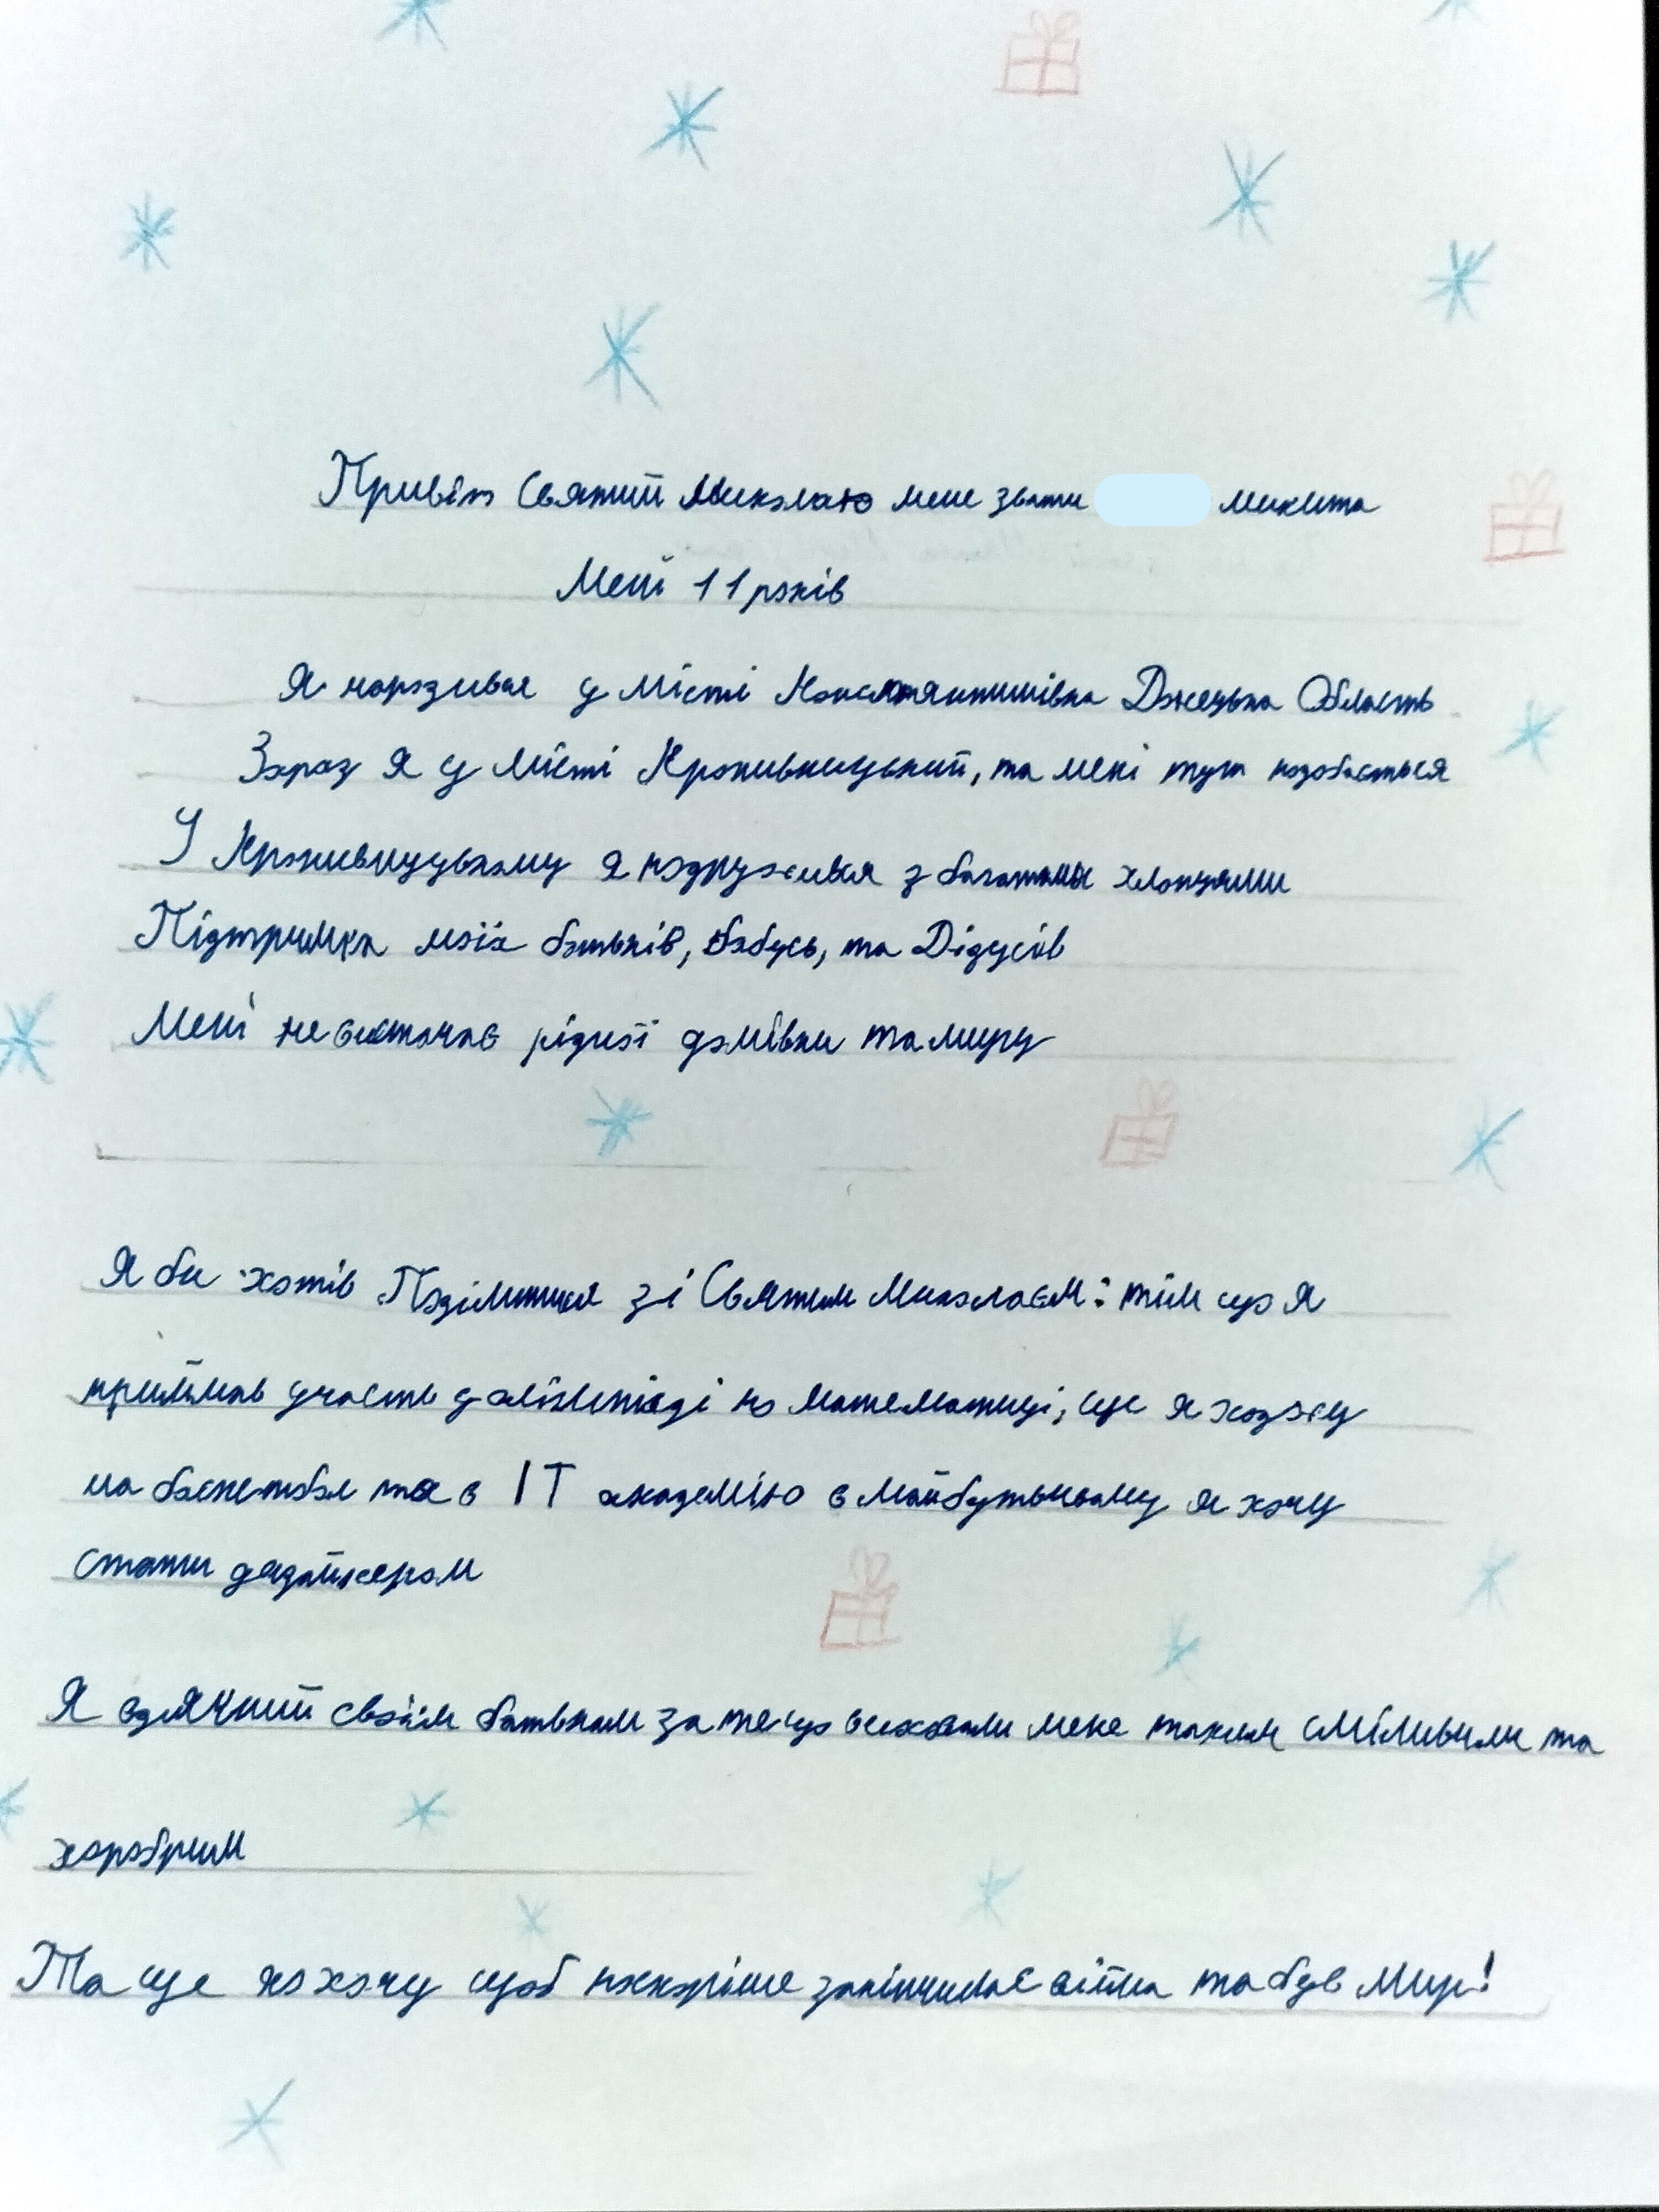 Привіт Святий Миколаю мене звати микита
Мені 11 років
Я народився у місті Констянтинівка Донецька Область
Зараз я у місті Кропивницький, та мені тут подобається
У Кропивницькому я подружився з багатьма хлопцями
Підтримка моїх батьків, бабусь, та Дідусів
Мені не вистачає рідної домівки та миру
Я би хотів Поділитися зі Святим Миколаєм: тим що я
приймав участь у олімпіаді по математиці, ще я ходжу
на баскетбол та в ІТ академію в майбутньому я хочу
стати дизайнером
Я вдячний своїм батькам за те що виховали мене таким сміливим та
хоробрим
Та ще я хочу щоб поскоріше закінчилася війна та був Мир!